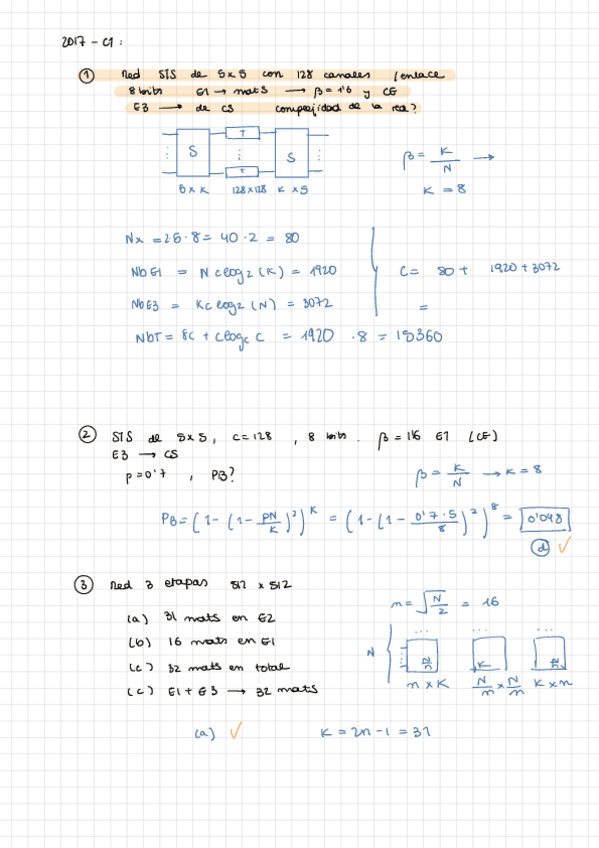 2017 - C1 :
① Red STS de 5x5 con 128 canales /enlace
8 bits E1 → mats → β = 1'6 y CE
E3 → de CS complejidad de la red?
S T T S
5 x K 128x128 K x 5
β = K/N →
K = 8
Nx = 2·5·8 = 40·2 = 80
NbE1 = N c log2 (K) = 1920
NbE3 = K c log2 (N) = 3072
C = 80 + 1920 + 3072
=
NbT = 8c + c log c C = 1920 · 8 = 15360
② STS de 5x5, C=128, 8 bits. β = 1'6 E1 (CE)
E3 → CS
p = 0'7, PB?
β = K/N → K = 8
PB = (1 - (1 - pN/K)²)^K = (1 - (1 - 0'7·5/8)²)^8 = 0'048
ⓓ ✓
③ Red 3 etapas 512 x 512
m = √(N/2) = 16
(a) 31 mats en E2
(b) 16 mats en E1
(c) 32 mats en total
(c) E1 + E3 → 32 mats
N
N/n K N/n
n x K N/n x N/n K x n
(a) ✓ K = 2n - 1 = 31